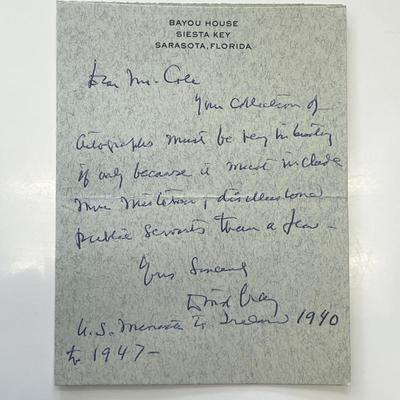 BAYOU HOUSE
SIESTA KEY
SARASOTA, FLORIDA
Dear Mr. Cole
Your collection of
autographs must be very interesting
if only because it must include
more
public servants than a few -
Yours Sincerely
David Gray
U.S. Minister to Ireland 1940
to 1947 -